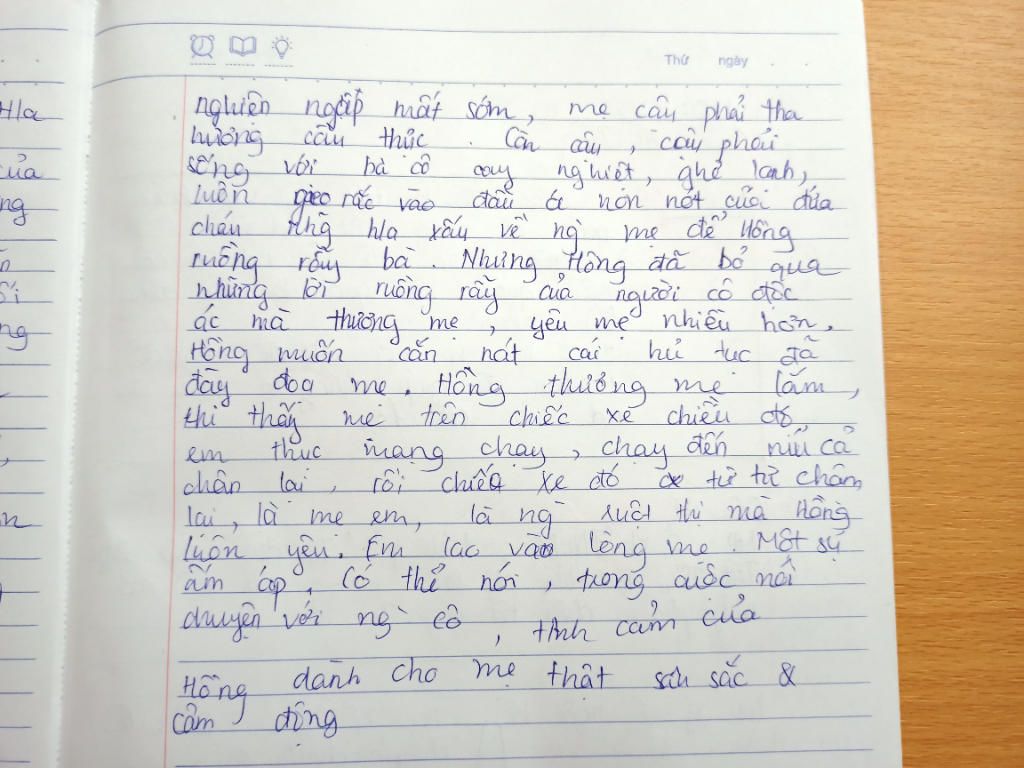 Thứ ngày
Hla
của
ng
ng
nghiện ngập mất sớm, mẹ cậu phải tha
hương cầu thực. Còn cậu, cậu phải
sống với bà cô cay nghiệt, ghẻ lạnh,
luôn gieo rắc vào đầu óc non nớt của đứa
cháu nhg hla xấu về ng` mẹ để Hồng
ruồng rẫy bà. Nhưng Hồng đã bỏ qua
những lời ruồng rẫy của người cô độc
ác mà thương mẹ, yêu mẹ nhiều hơn.
Hồng muốn cắn nát cái hủ tục đã
đầy đoạ mẹ. Hồng thương mẹ lắm,
thi thấy mẹ trên chiếc xe chiều đó
em thục mạng chạy, chạy đến níu cả
chân lại, rồi chiếc xe đó từ từ chậm
lại, là mẹ em, là ng` mà Hồng
luôn yêu. Em lao vào lòng mẹ. Một sự
ấm áp. Có thể nói, trong cuộc nói
chuyện với ng` cô, tình cảm của
Hồng dành cho mẹ thật sâu sắc &
cảm động